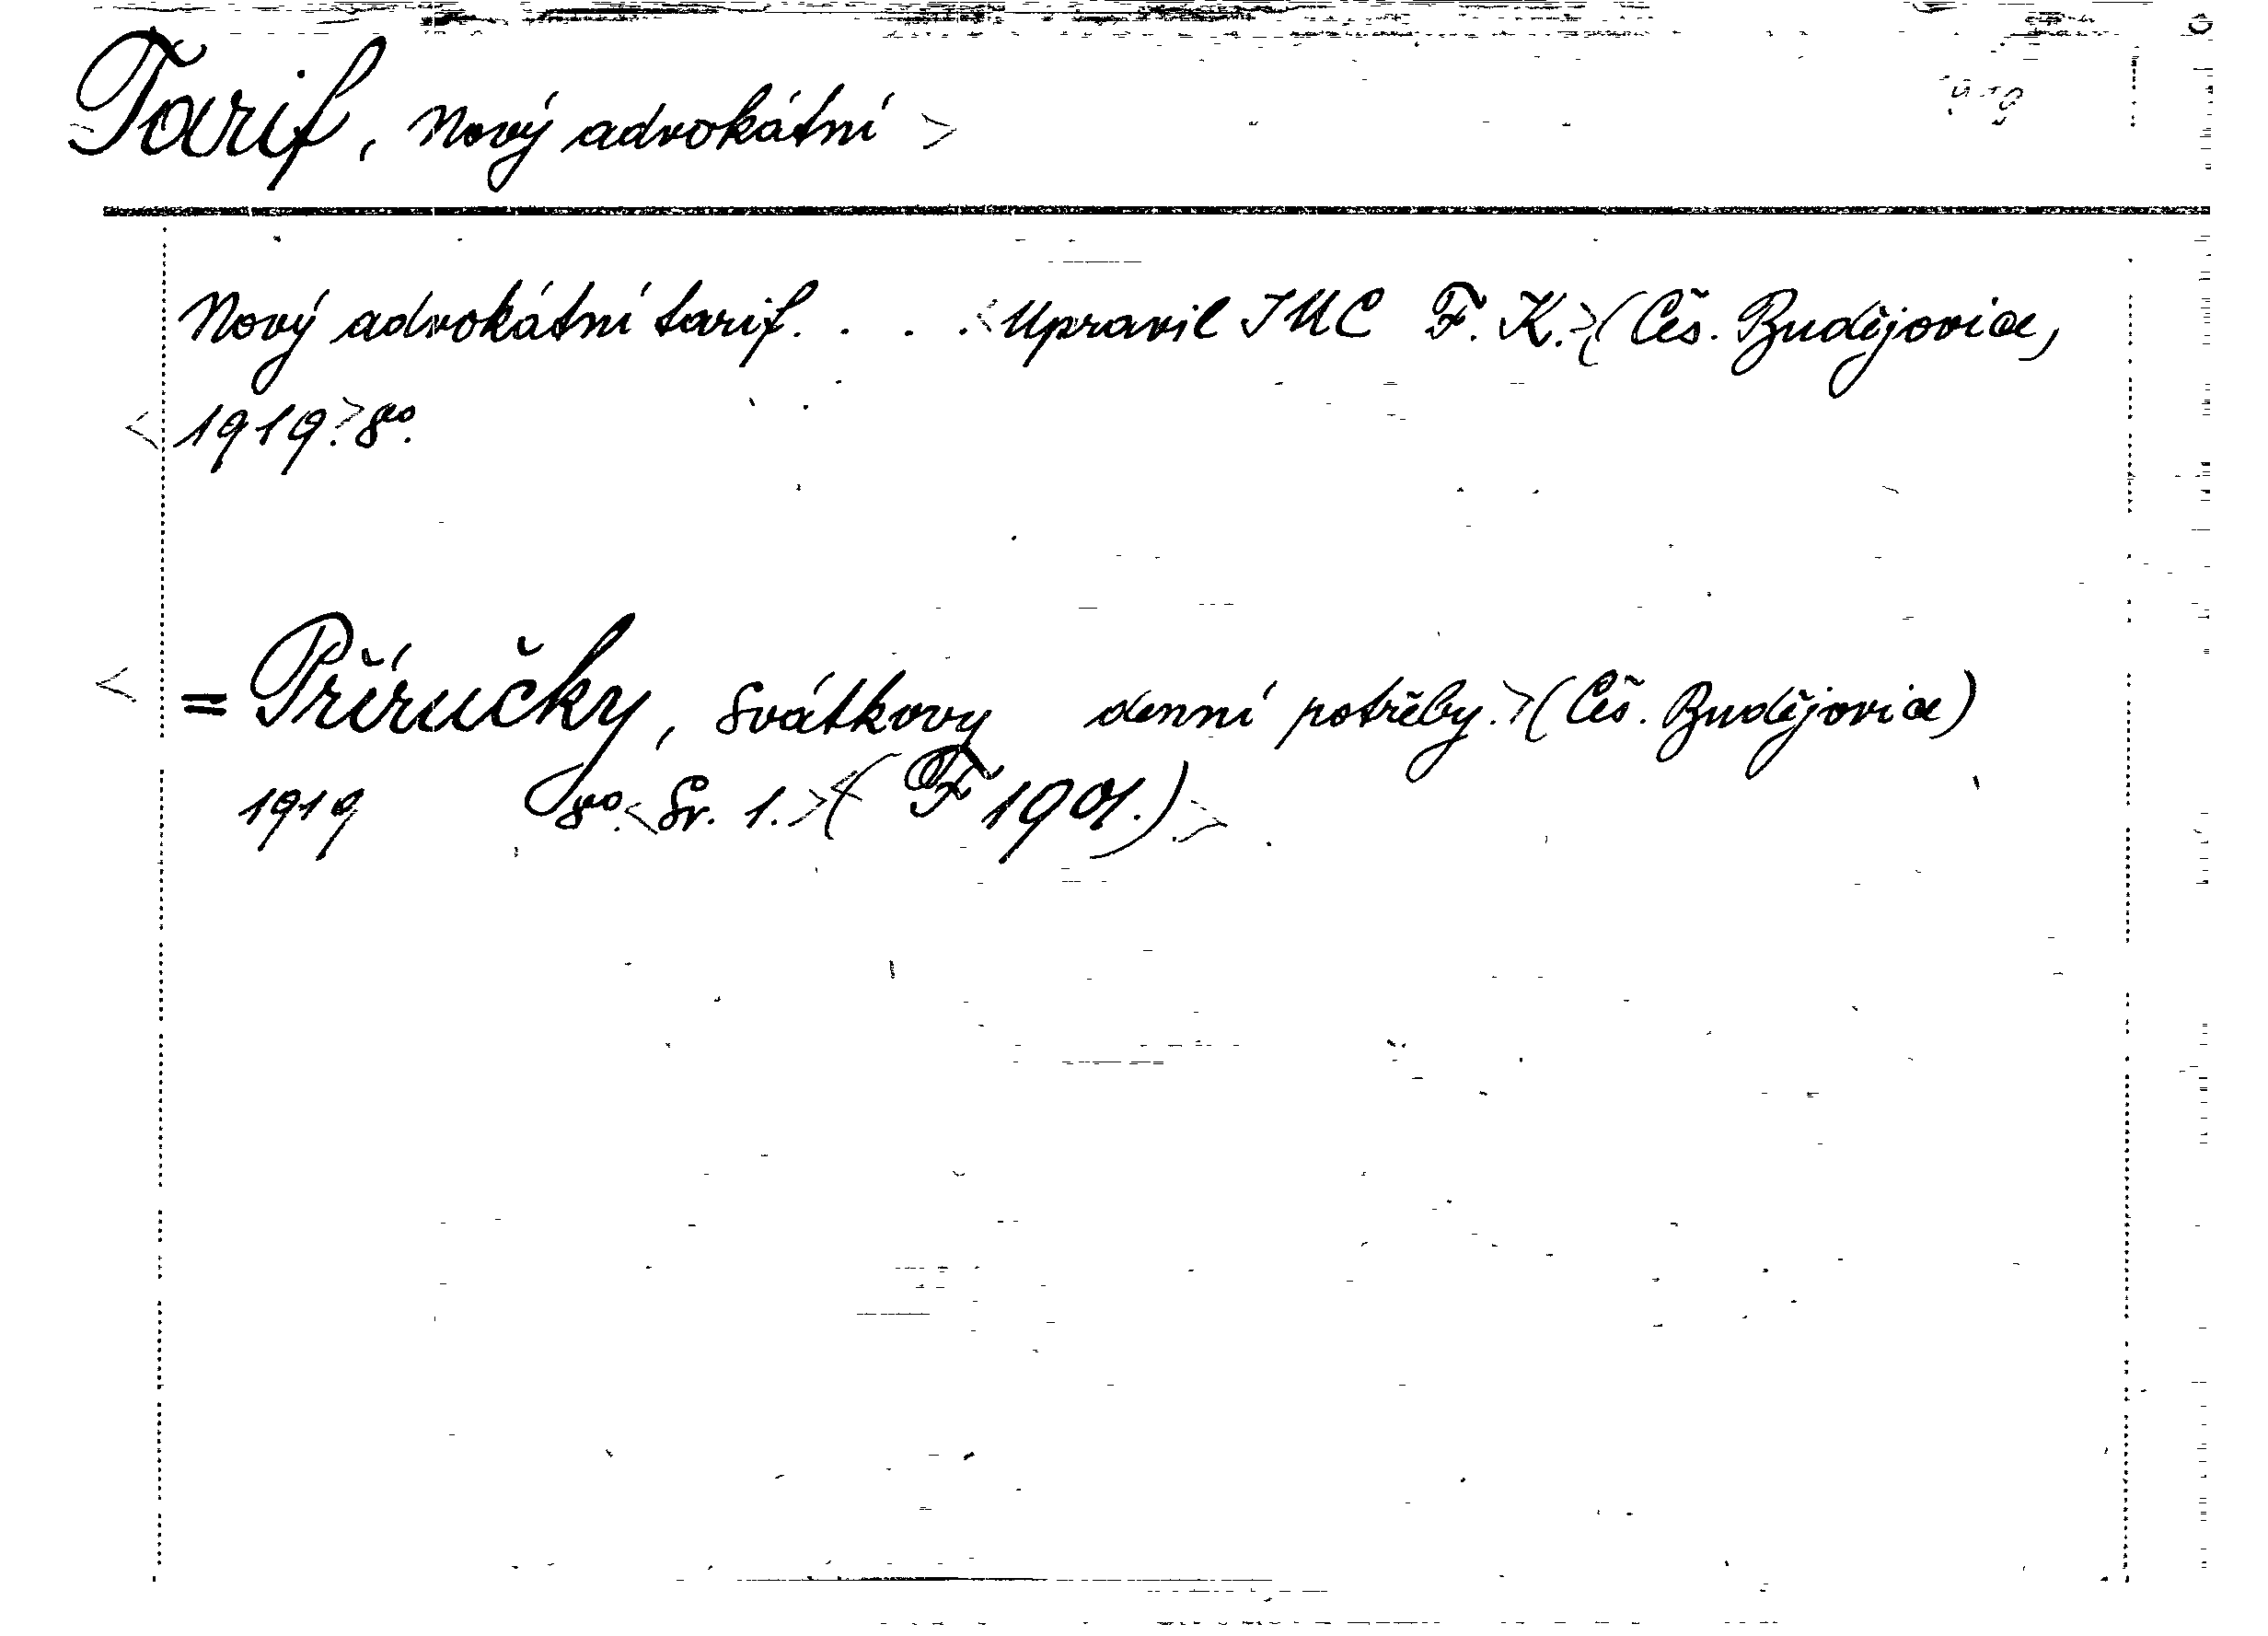 Tarif, Nový advokátní >
Nový advokátní tarif. . . . <Upravil JUC F. K.> (Čes. Budějovice,
<1919.> 8º.
< = Příručky, Svátkovy denní potřeby.> (Čes. Budějovice)
1919 8º. <Sv. 1.> (F 1901.) >